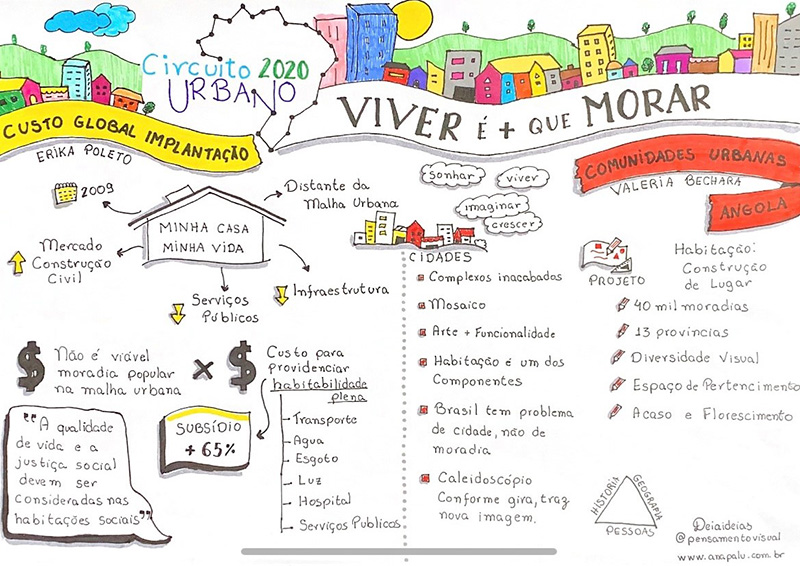 Circuito 2020
URBANO
VIVER é + que MORAR
CUSTO GLOBAL IMPLANTAÇÃO
ERIKA POLETO
2009
MINHA CASA
MINHA VIDA
Distante da
Malha Urbana
Mercado
Construção
Civil
Serviços
Públicos
Infraestrutura
$ Não é viável
moradia popular
na malha urbana
X
$ Custo para
providenciar
habitabilidade
plena
Transporte
Agua
Esgoto
Luz
Hospital
Serviços Publicos
SUBSÍDIO
+ 65%
"A qualidade
de vida e a
justiça social
devem ser
consideradas nas
habitações sociais"
sonhar
viver
imaginar
crescer
CIDADES
Complexos inacabados
Mosaico
Arte + Funcionalidade
Habitação é um dos
Componentes
Brasil tem problema
de cidade, não de
moradia
Caleidoscópio
Conforme gira, traz
nova imagem.
COMUNIDADES URBANAS
VALERIA BECHARA
ANGOLA
PROJETO
Habitação:
Construção
de Lugar
40 mil moradias
13 províncias
Diversidade Visual
Espaço de Pertencimento
Acaso e Florescimento
HISTORIA
GEOGRAFIA
PESSOAS
Deiaideias
@pensamentovisual
www.anapalu.com.br